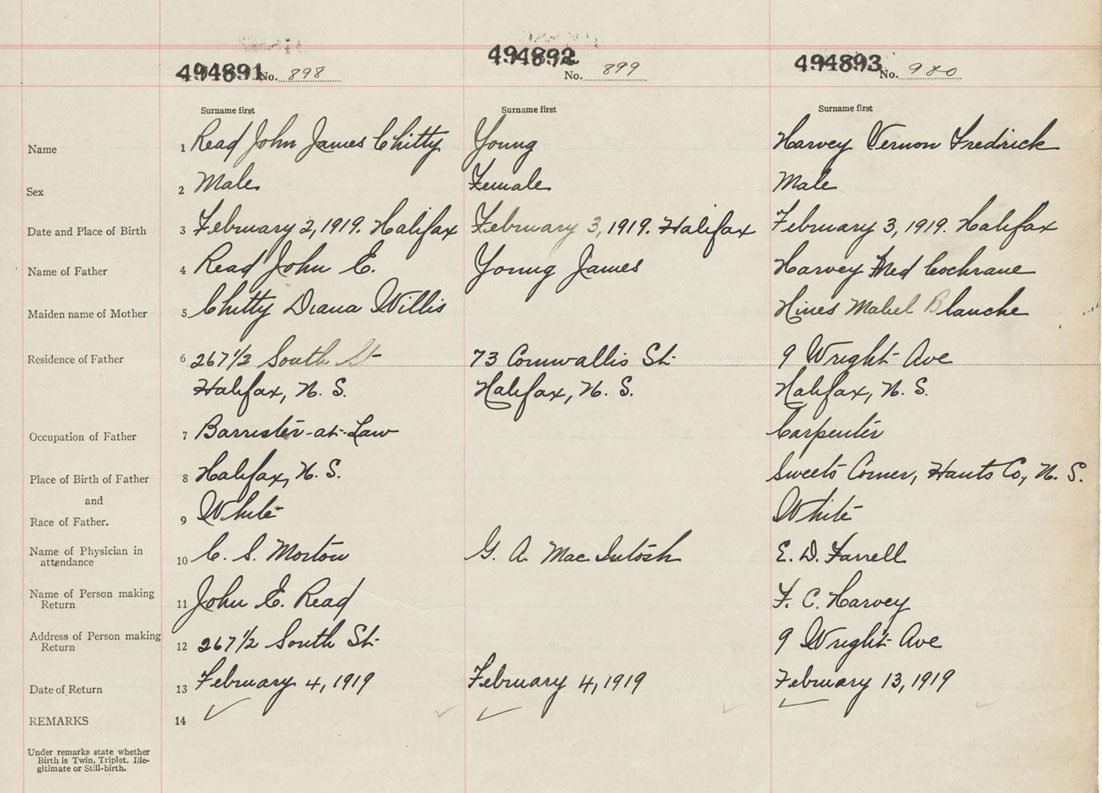 494891 No. 898 494892 No. 899 494893 No. 900
Surname first Surname first Surname first
Name 1 Read John James Chitty Young Harvey Vernon Fredrick
Sex 2 Male Female Male
Date and Place of Birth 3 February 2, 1919. Halifax February 3, 1919. Halifax February 3, 1919. Halifax
Name of Father 4 Read John E. Young James Harvey Fred Cochrane
Maiden name of Mother 5 Chitty Diana Willis Hines Mabel Blanche
Residence of Father 6 267 1/2 South St 73 Cornwallis St 9 Wright Ave
Halifax, N. S. Halifax, N. S. Halifax, N. S.
Occupation of Father 7 Barrister-at-Law Carpenter
Place of Birth of Father 8 Halifax, N. S. Sweets Corner, Hants Co, N. S.
and
Race of Father. 9 White White
Name of Physician in attendance 10 C. S. Morton G. A. Mac Intosh E. D. Farrell
Name of Person making Return 11 John E. Read F. C. Harvey
Address of Person making Return 12 267 1/2 South St 9 Wright Ave
Date of Return 13 February 4, 1919 February 4, 1919 February 13, 1919
REMARKS 14
Under remarks state whether
Birth is Twin, Triplet, Ille-
gitimate or Still-birth.